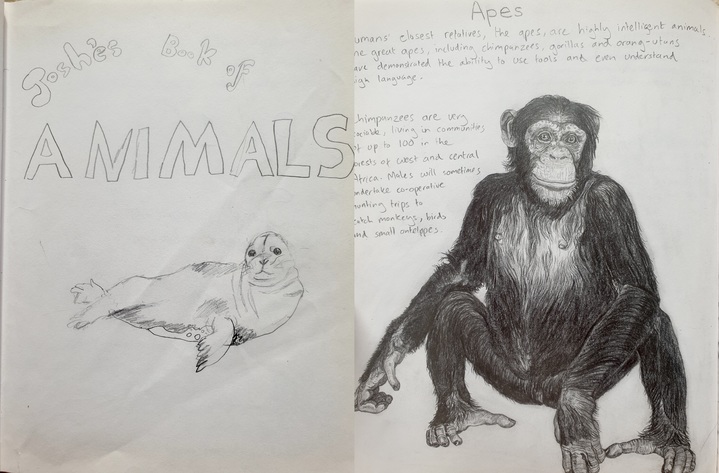 Josh'es Book of
ANIMALS
Apes
umans closest relatives, the apes, are highly intelligent animals.
he great apes, including chimpanzees, gorillas and orang-utans
ave demonstrated the ability to use tools and even understand
ign language.
himpanzees are very
ociable, living in communities
f up to 100 in the
orests of west and central
Africa. Males will sometimes
undertake co-operative
unting trips to
catch monkeys, birds
and small antelopes.